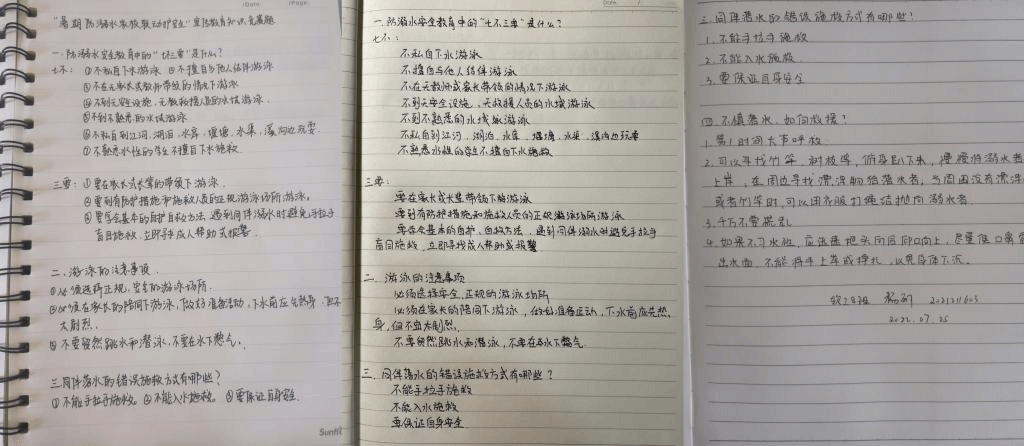 Date: /Page:
"暑期防溺水家校联动护安全"宣防教育知识竞赛题
一.防溺水安全教育中的"七不三要"是什么?
七不: ①不私自下水游泳 ②不擅自与他人结伴游泳
③不在无家长或教师带领的情况下游泳
④不到无安全设施、无救援人员的水域游泳.
⑤不到不熟悉的水域游泳
⑥不私自到江河、湖泊、水库、堰塘、水渠、溪沟边玩耍.
⑦不熟悉水性的学生不擅自下水施救.
三要: ①要在家长或长辈的带领下游泳.
②要到有防护措施和施救人员的正规游泳场所游泳.
③要学会基本的自护自救方法,遇到同伴溺水时避免手拉手
盲目施救,立即寻求成人帮助或报警.
二、游泳的注意事项.
①必须选择正规,安全的游泳场所.
②必须在家长的陪同下游泳,做好准备活动,下水前应先热身,但不
太剧烈.
③不要贸然跳水和潜泳,不要在水下憋气.
三.同伴落水的错误施救方式有哪些?
①不能手拉手施救. ②不能入水施救. ③要保证自身安全.
Sunfil
Date /
一.防溺水安全教育中的"七不三要"是什么?
七不:
不私自下水游泳
不擅自与他人结伴游泳
不在无教师或家长带领的情况下游泳
不到无安全设施、无救援人员的水域游泳
不到不熟悉的水域游泳
不私自到江河、湖泊、水库、堰塘、水渠、溪沟边玩耍
不熟悉水性的学生不擅自下水施救
三要:
要在家长或长辈带领下游泳
要到有防护措施和施救人员的正规游泳场所游泳
要学会基本的自护、自救方法,遇到同伴溺水时避免手拉手
盲目施救,立即寻找成人帮助或报警
二、游泳的注意事项
必须选择安全,正规的游泳场所
必须在家长的陪同下游泳,做好准备运动,下水前应先热
身,但不宜太剧烈.
不要贸然跳水和潜泳,不要在水下憋气
三.同伴落水的错误施救方式有哪些?
不能手拉手施救
不能入水施救
要保证自身安全
三.同伴落水的错误施救方式有哪些?
1.不能手拉手施救
2.不能入水施救
3.要保证自身安全
四.不慎落水,如何救援?
1.第1时间大声呼救
2.可以寻找竹竿、树枝等,俯身趴下来,慢慢将溺水者
上岸,在周边寻找漂浮物给落水者,当周围没有漂浮
或者竹竿时,可以用衣服打绳结抛向溺水者.
3.千万不要慌乱
4.如果不习水性,应迅速把头向后仰口向上,尽量使口鼻露
出水面,不能将手上举或挣扎,以免身体下沉.
2021211603
2022.07.25